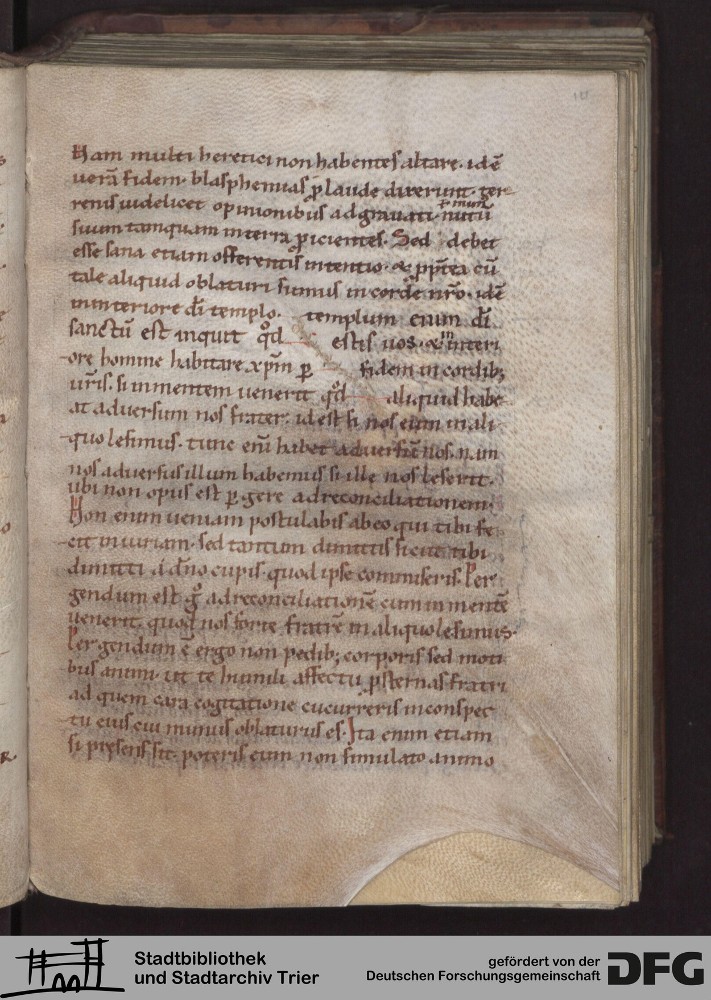 Nam multi heretici non habentes altare. idē
uerā fidem. blasphemias p̱ laude dixerunt. ter
renis uidelicet opinionibus adgrauati. nutū
suum tamquam in terra p̱icientes. Sed debet
esse sana etiam offerentis intentio. & pp̄tea cū
tale aliquid oblaturi sumus in corde nr̄o. idē
in interiore dī templo. templum enim dī
sanctū est inquit qd̄ estis uos. & in interi
ore homine habitare xp̄m p̱ fidem in cordib;
ur̄is. si in mentem uenerit qd̄ aliquid habe
at aduersum nos frater. id est si nos eum in ali
quo lesimus. tunc enī habet aduersū nos. nam
nos aduersus illum habemus si ille nos leserit.
ubi non opus est p̱gere ad reconciliationem.
Non enim ueniam postulabis ab eo qui tibi fe
cit iniuriam. sed tantum dimittis sicut tibi
dimitti a dn̄o cupis. quod ipse commiseris. Per
gendum est g° ad reconciliationē cum in mentē
uenerit. quod nos forte fratrē in aliquo lesimus.
Per gendum ē ergo non pedib; corporis sed moti
bus animi. ut te humili affectu p̱sternas fratri
ad quem cara cogitatione cucurreris in conspec
tu eius cui munus oblaturus es. Ita enim etiam
si presens sit. poteris eum non simulato animo
Stadtbibliothek
und Stadtarchiv Trier
gefördert von der
Deutschen Forschungsgemeinschaft
DFG